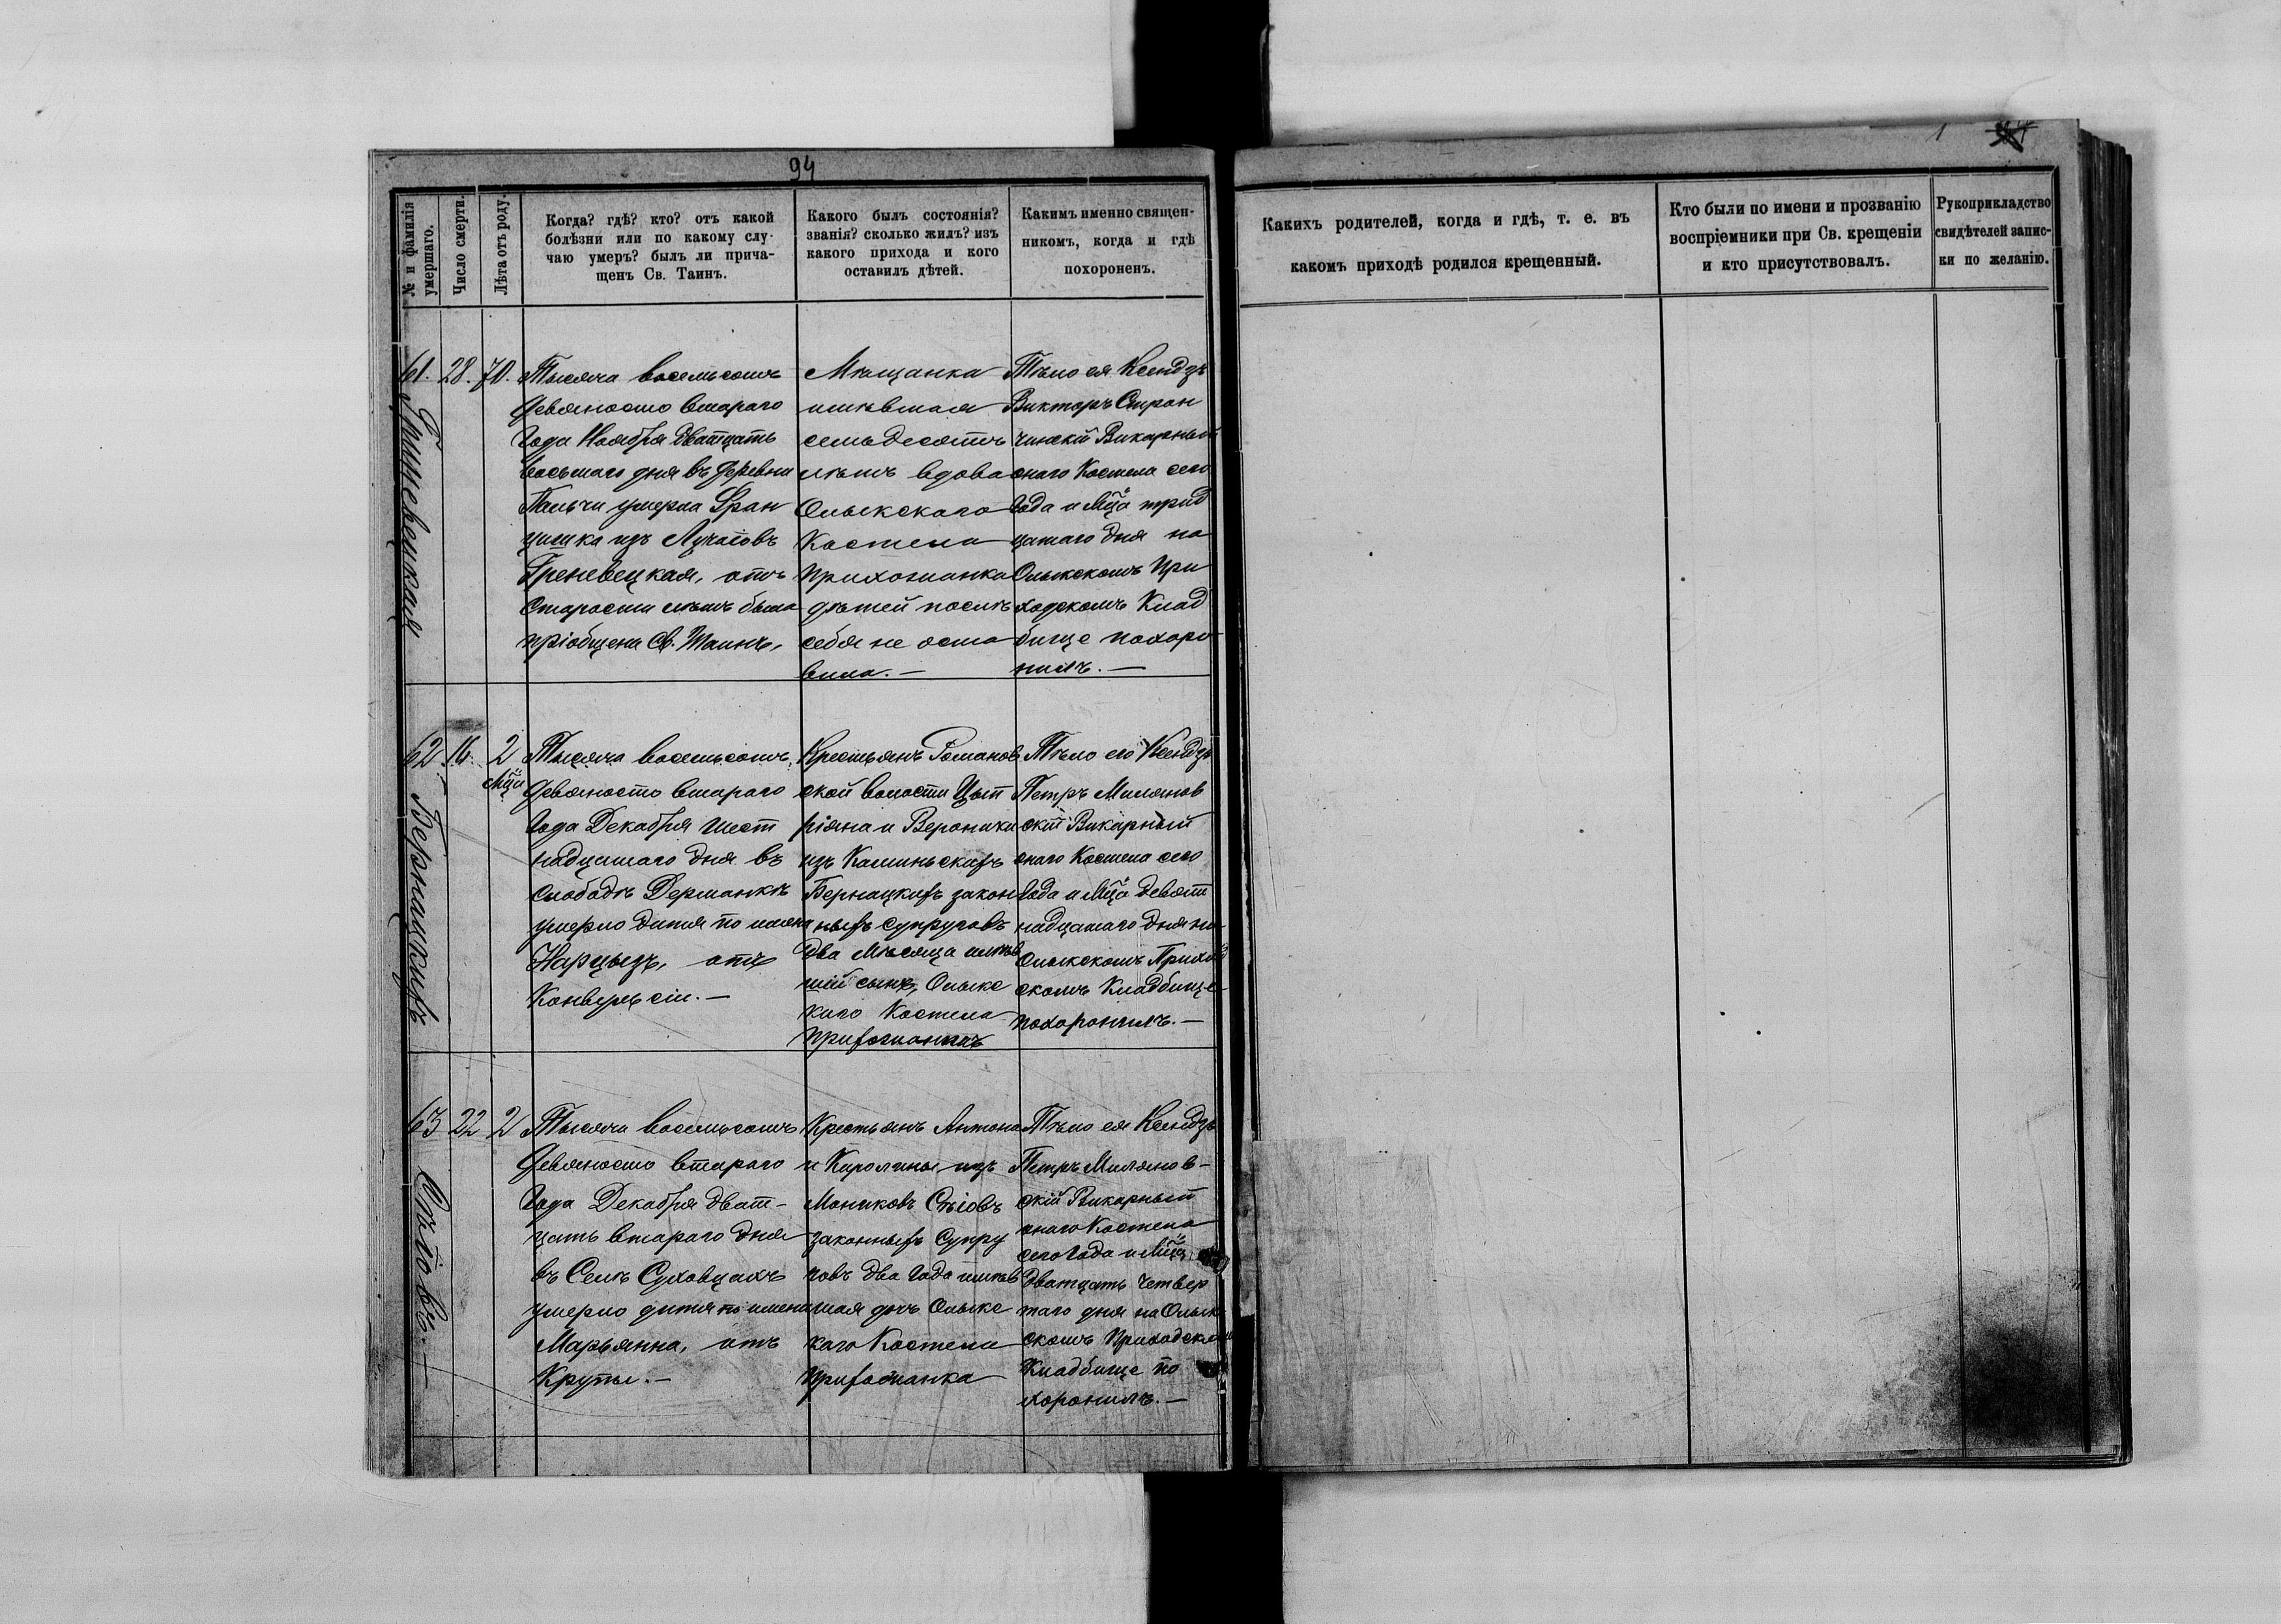 94
№ и фамилія умершаго.
Число смерти.
Лѣта отъ роду.
Когда? гдѣ? кто? отъ какой
болѣзни или по какому слу-
чаю умеръ? былъ ли прича-
щенъ Св. Таинъ.
Какого былъ состоянія?
званія? сколько жилъ? изъ
какого прихода и кого
оставилъ дѣтей.
Какимъ именно священ-
никомъ, когда и гдѣ
похороненъ.
61.
Гриневецкая
28.
70.
Тысяча восемьсотъ
девяносто втараго
года Ноября дватцать
восьмаго дня въ деревни
Пальчи умерла Фран
цишка изъ
Греневецкая, отъ
старости лѣтъ была
пріобщена Св. Таинъ,
Мѣщанка
имѣвшая
семьдесятъ
лѣтъ вдова
Олыкскаго
Костела
прихожанка
дѣтей послѣ
себя не оста
вила. —
Тѣло ея Ксендзъ
Викторъ Стран
чинскій Викарный
онаго Костела сего
года и Мца трид
цатаго дня на
Олыкскомъ При
ходскомъКлад
бище похоро
нилъ. —
62
Бернацкихъ
16.
2
Мца
Тысяча восемьсотъ
девяносто втараго
года Декабря шест
надцатаго дня въ
слободѣ Дерманкѣ
умерло дитя по имени
Нарцызъ, отъ
Конвульсіи. —
Крестьянъ Романов
ской волости Цып
ріяна и Вероники
изъ Каминьскихъ
Бернацкихъ закон
ныхъ супруговъ
два Мѣсяца имѣв
шій сынъ, Олыкс
каго Костела
прихожанинъ
Тѣло его Ксендзъ
Петръ Милянов
скій Викарный
онаго Костела сего
года и Мца девят
надцатаго дня на
Олыкскомъ Приход
скомъ Кладбище
похоронилъ. —
63
22
2
Тысяча восемьсотъ
девяносто втараго
года Декабря дват-
цать втараго дня
въ Селѣ Суховцахъ
умерло дитя по имени
Марьянна, отъ
Крупы. —
Крестьянъ Антона
и Каролины изъ
законныхъ Супру
говъ два года имѣв
шая дочь Олыкс
каго Костела
прихожанка
Тѣло ея Ксендзъ
Петръ Милянов-
скій Викарный
онаго Костела
сего года и Мца
дватцать четвер
таго дня на Олык
скомъ Приходском
Кладбище по
хоронилъ. —
1
Какихъ родителей, когда и гдѣ, т. е. въ
какомъ приходѣ родился крещенный.
Кто были по имени и прозванію
воспріемники при Св. крещеніи
и кто присутствовалъ.
Рукоприкладство
свидѣтелей запис-
ки по желанію.